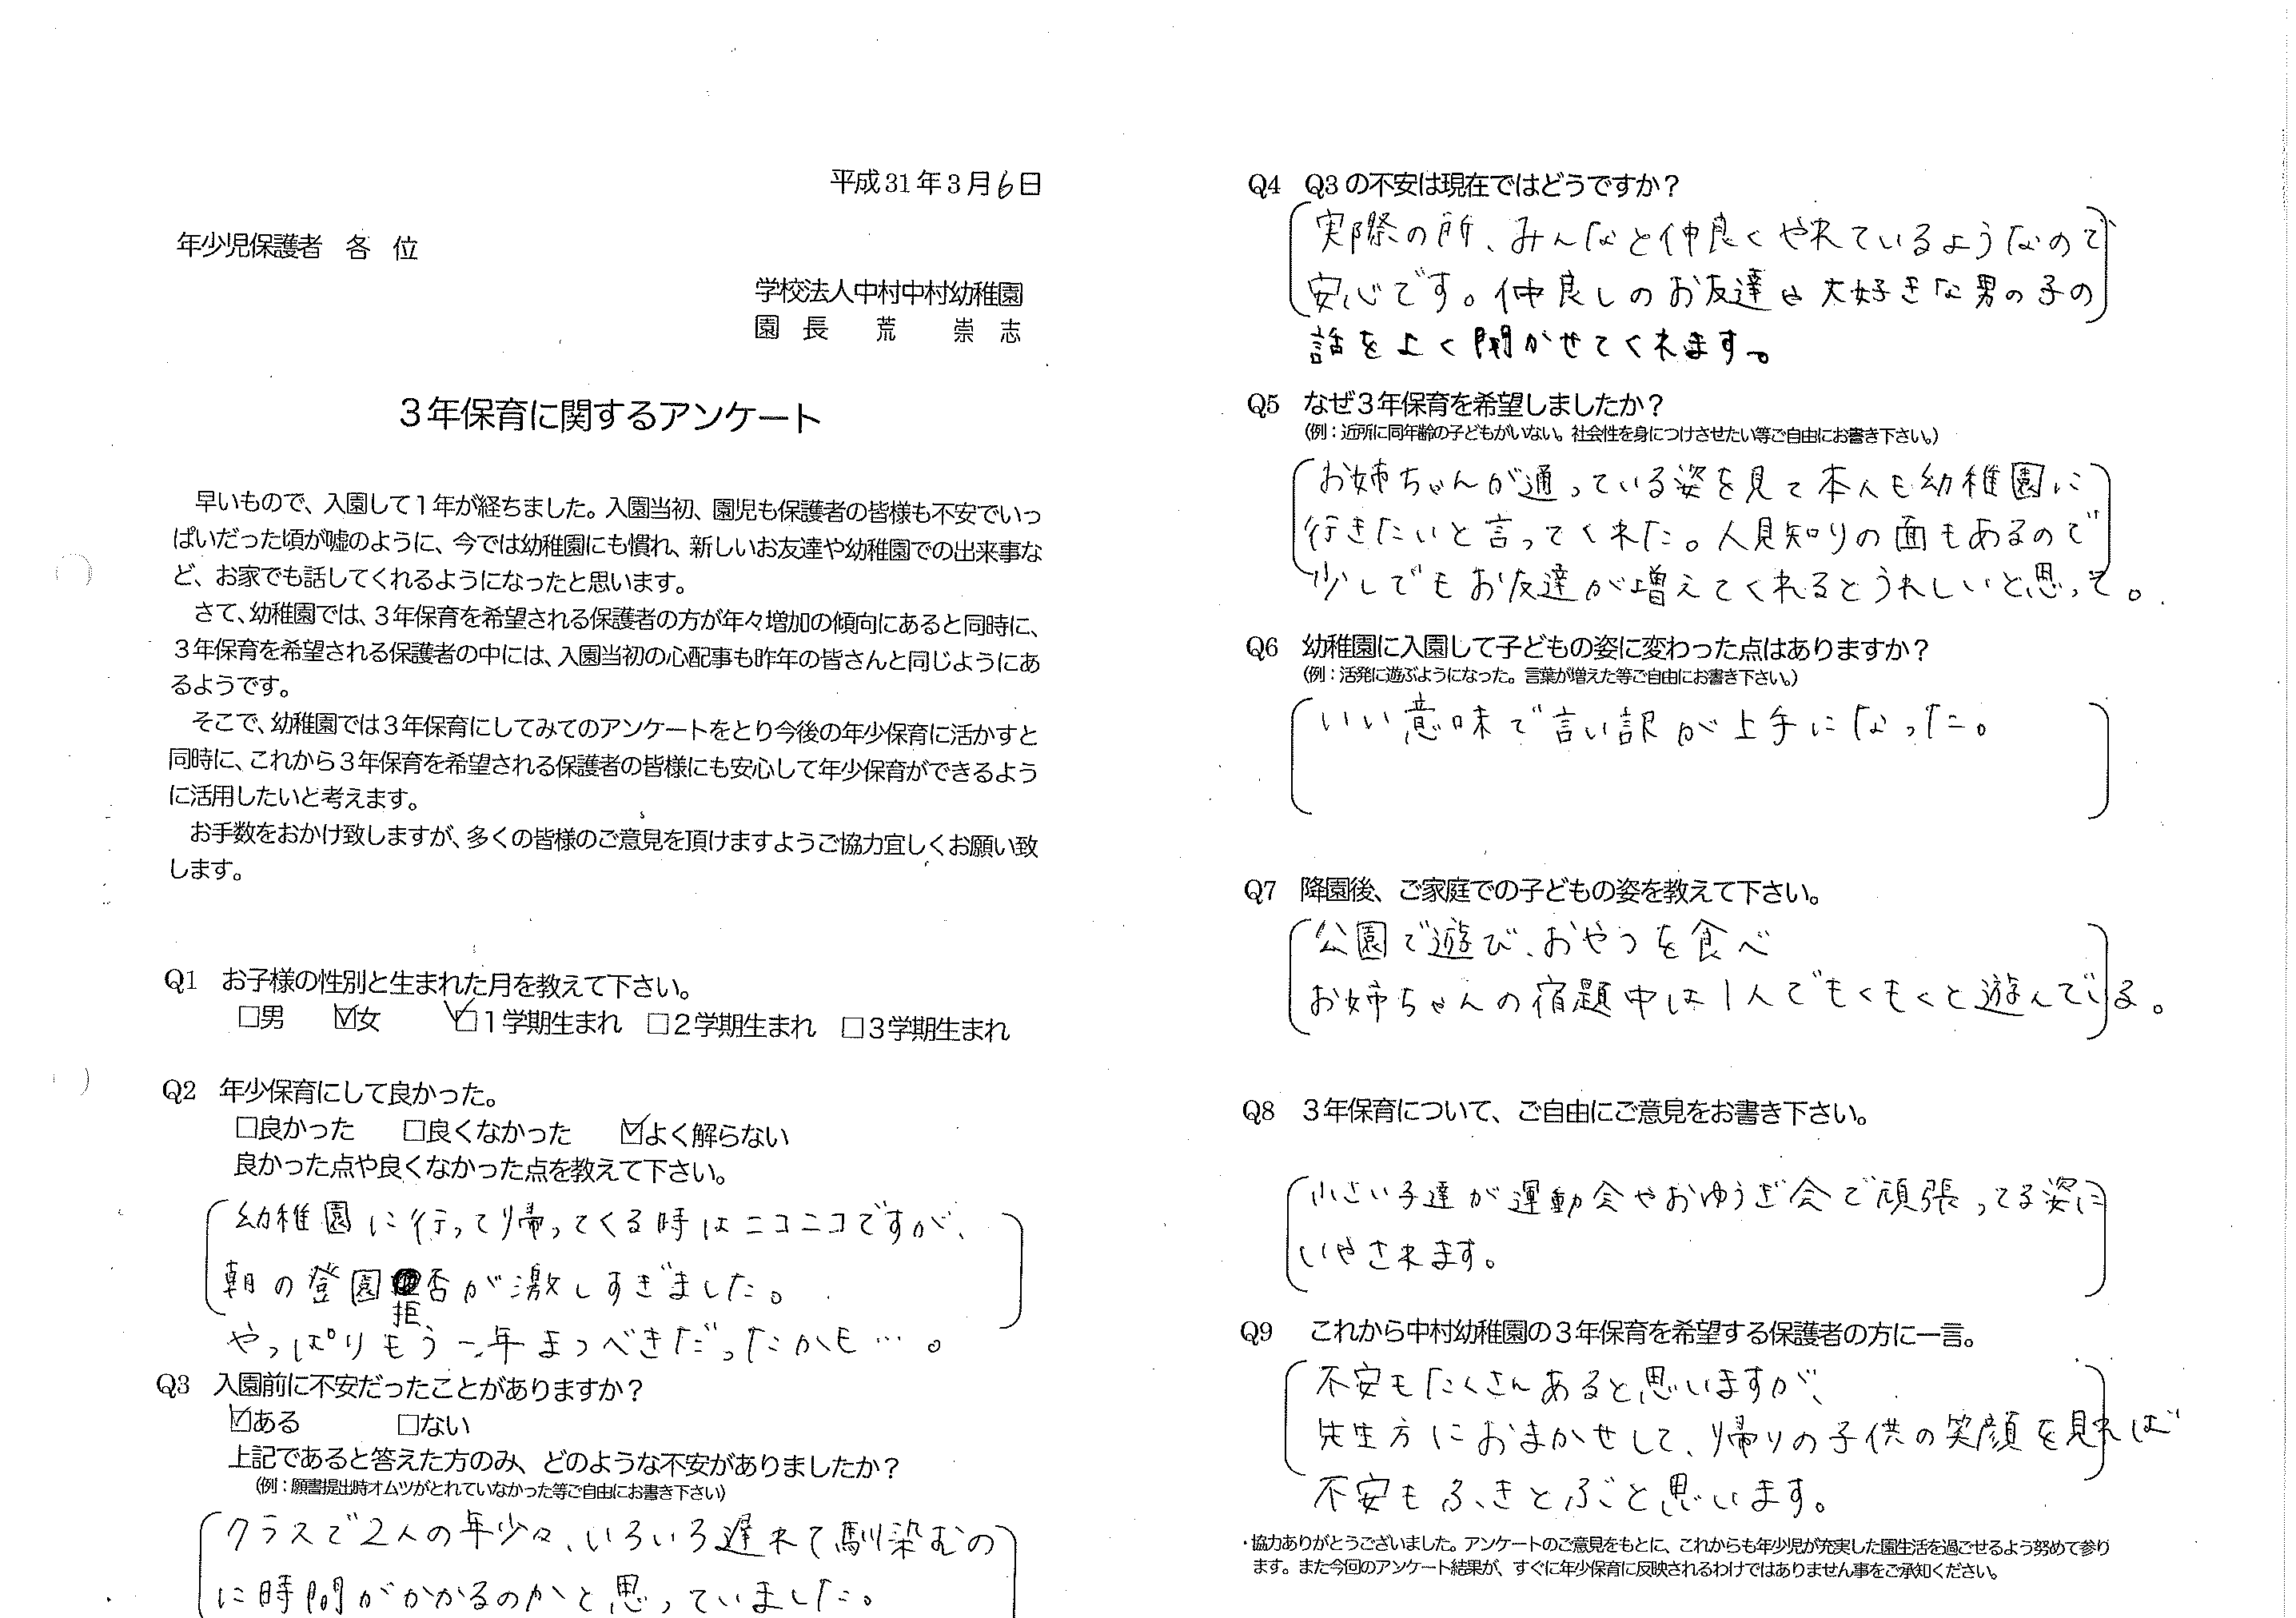 平成31年3月6日
年少児保護者 各 位
学校法人中村中村幼稚園
園 長 荒 崇 志
3年保育に関するアンケート
早いもので、入園して1年が経ちました。入園当初、園児も保護者の皆様も不安でいっ
ぱいだった頃が嘘のように、今では幼稚園にも慣れ、新しいお友達や幼稚園での出来事な
ど、お家でも話してくれるようになったと思います。
さて、幼稚園では、3年保育を希望される保護者の方が年々増加の傾向にあると同時に、
3年保育を希望される保護者の中には、入園当初の心配事も昨年の皆さんと同じようにあ
るようです。
そこで、幼稚園では3年保育にしてみてのアンケートをとり今後の年少保育に活かすと
同時に、これから3年保育を希望される保護者の皆様にも安心して年少保育ができるよう
に活用したいと考えます。
お手数をおかけ致しますが、多くの皆様のご意見を頂けますようご協力宜しくお願い致
します。
Q1 お子様の性別と生まれた月を教えて下さい。
□男 ☑女 ☑1学期生まれ □2学期生まれ □3学期生まれ
Q2 年少保育にして良かった。
□良かった □良くなかった ☑よく解らない
良かった点や良くなかった点を教えて下さい。
幼稚園に行って帰ってくる時はニコニコですが、
朝の登園拒否が激しすぎました。
やっぱりもう一年まつべきだったかも…。
Q3 入園前に不安だったことがありますか?
☑ある □ない
上記であると答えた方のみ、どのような不安がありましたか?
(例:願書提出時オムツがとれていなかった等ご自由にお書き下さい)
クラスで2人の年少々、いろいろ遅れて馴染むの
に時間がかかるのかと思っていました。
Q4 Q3の不安は現在ではどうですか?
実際の所、みんなと仲良くやれているようなので
安心です。仲良しのお友達や大好きな男の子の
話をよく聞かせてくれます。
Q5 なぜ3年保育を希望しましたか?
(例:近所に同年齢の子どもがいない。社会性を身につけさせたい等ご自由にお書き下さい。)
お姉ちゃんが通っている姿を見て本人も幼稚園に
行きたいと言ってくれた。人見知りの面もあるので
少しでもお友達が増えてくれるとうれしいと思って。
Q6 幼稚園に入園して子どもの姿に変わった点はありますか?
(例:活発に遊ぶようになった。言葉が増えた等ご自由にお書き下さい。)
いい意味で言い訳が上手になった。
Q7 降園後、ご家庭での子どもの姿を教えて下さい。
公園で遊び、おやつを食べ
お姉ちゃんの宿題中は1人でもくもくと遊んでいる。
Q8 3年保育について、ご自由にご意見をお書き下さい。
小さい子達が運動会やおゆうぎ会で頑張ってる姿に
いやされます。
Q9 これから中村幼稚園の3年保育を希望する保護者の方に一言。
不安もたくさんあると思いますが、
先生方におまかせして、帰りの子供の笑顔を見れば
不安もふきとぶと思います。
・協力ありがとうございました。アンケートのご意見をもとに、これからも年少児が充実した園生活を過ごせるよう努めて参り
ます。また今回のアンケート結果が、すぐに年少保育に反映されるわけではありません事をご承知ください。